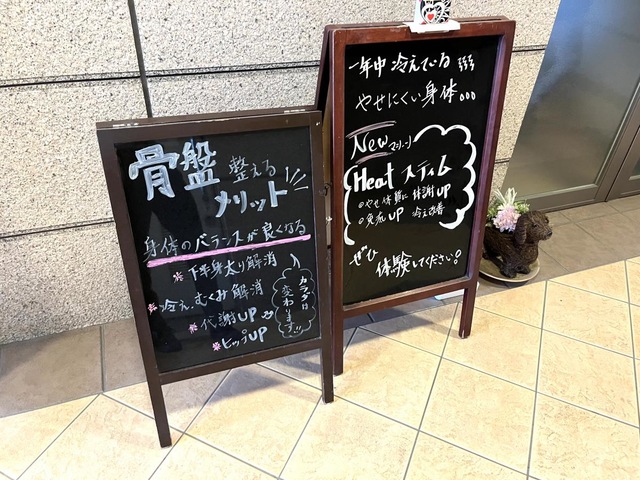 骨盤 整える
メリット
身体のバランスが良くなる
下半身太り解消
冷え、むくみ解消
代謝UP
ヒップUP
カラダは
変わります!!
一年中 冷えている
やせにくい身体。。。
New マシーン
Heat スティム
◎やせ体質に 代謝UP
◎免疫UP 冷え改善
ぜひ
体験してください!